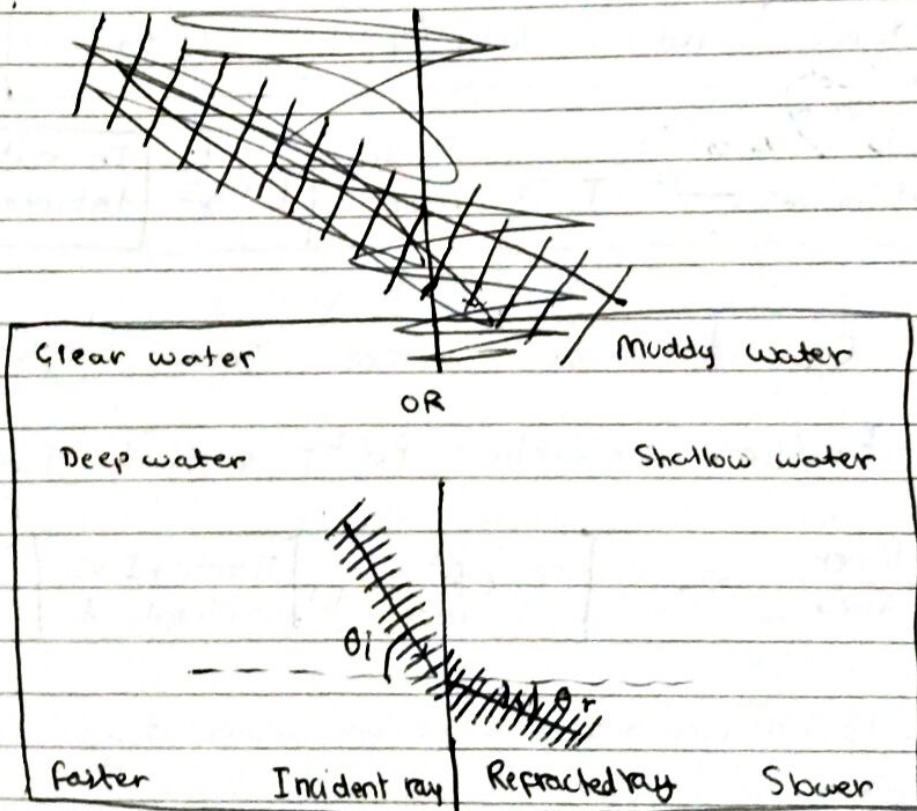 Clear water Muddy water
OR
Deep water Shallow water
θi
θr
faster Incident ray Refracted ray Slower